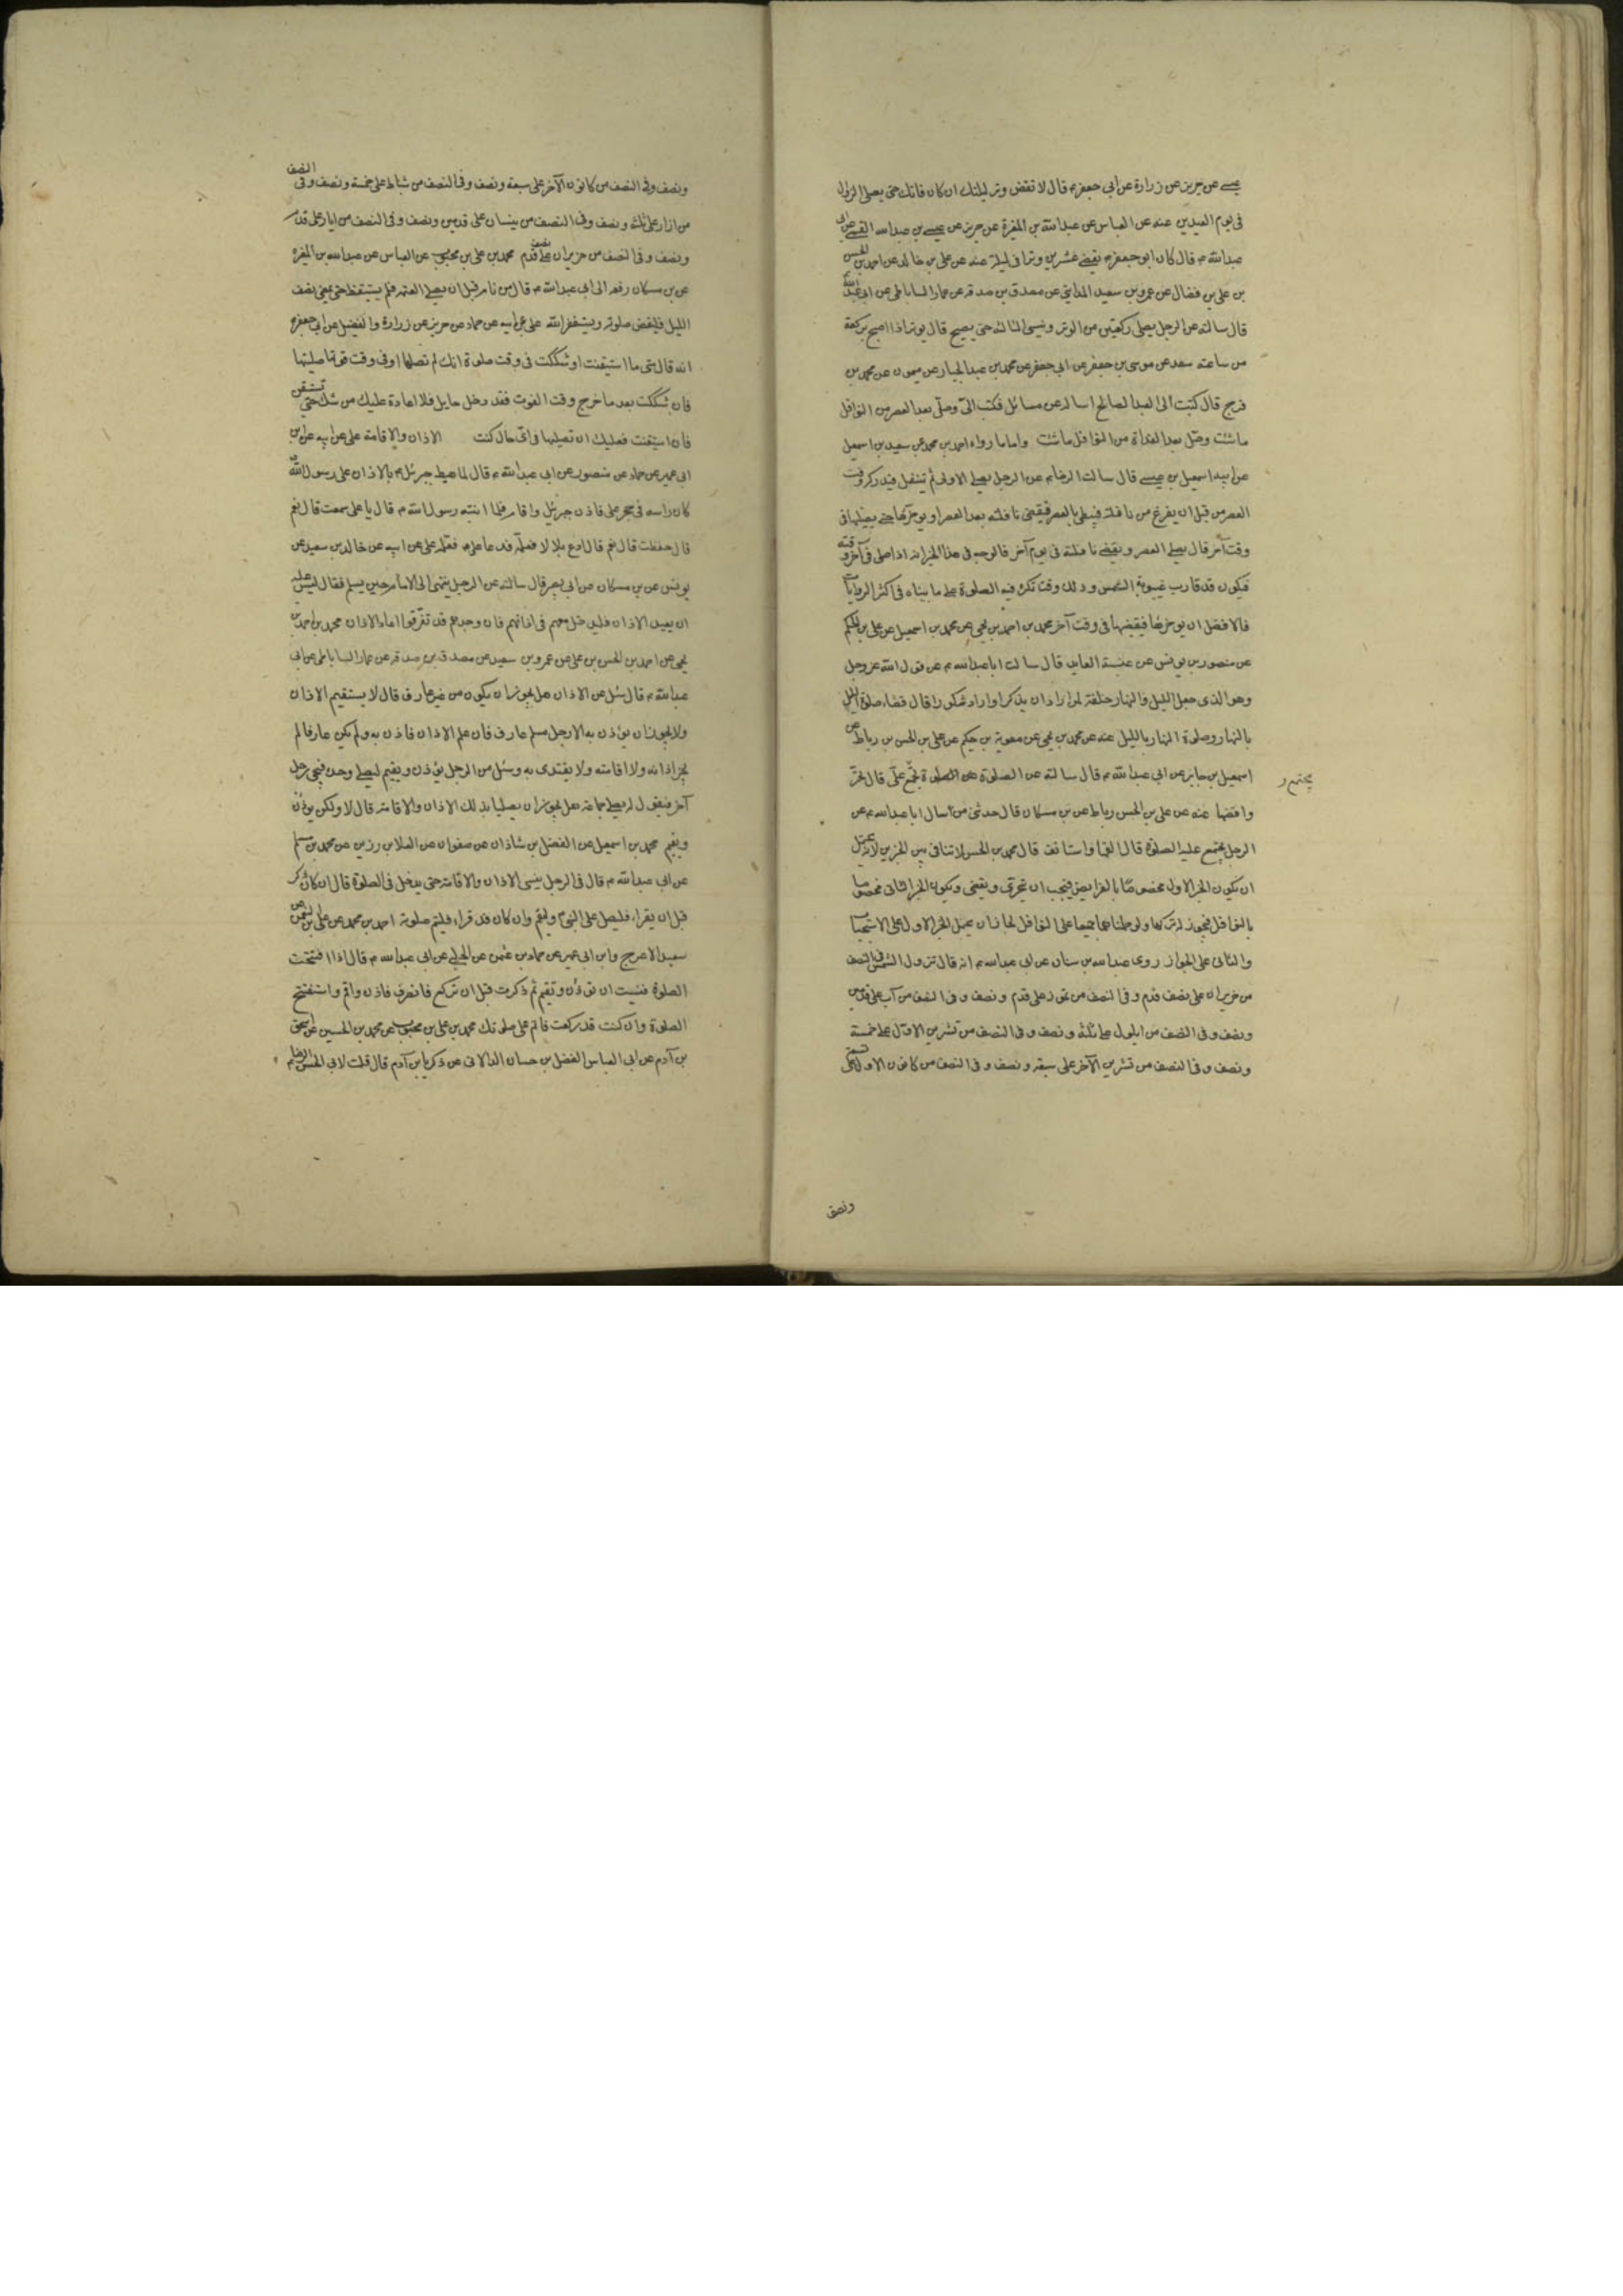 عيسى عن حريز عن زرارة عن ابي جعفر ع قال لا تقض وتر ليلتك ان كان فاتك حتى يصلي الزوال
في يوم العيدين عنه عن العباس عن عبد الله بن المغيرة عن حريز عن عيسى بن عبد الله القمي عن ابي
عبد الله ع قال كان ابو جعفر ع يقضي عشرين وترا في ليلة عنه عن علي بن خالد عن احمد بن الحسن
بن علي بن فضال عن عمرو بن سعيد المدايني عن مصدق بن صدقة عن عمار الساباطي عن ابي عبد الله ع
قال سالته عن الرجل يصلي ركعتين من الوتر وينسى الثالثة حتى يصبح قال يوتر اذا اصبح بركعة
من ساعته سعد عن موسى بن جعفر عن ابي جعفر عن محمد بن عبد الجبار عن ميمون عن محمد بن
فرج قال كتبت الى العبد الصالح اساله عن مسائل فكتب اليّ وصلّ بعد العصر من النوافل
ما شئت وصلّ بعد الغداة من النوافل ما شئت واما ما رواه احمد بن محمد عن سعيد بن اسمعيل
عن ابيه اسمعيل بن عيسى قال سالت الرضا ع عن الرجل يصلي الاولى ثم يتنفل فيدركه وقت
العصر من قبل ان يفرغ من نافلته فيبطي بالعصر فيقضي نافلته بعد العصر او يوخرها حتى يصليها في
وقت آخر قال يصلي العصر ويقضي نافلته في يوم آخر فالوجه في هذا الخبر انه اذا صلى في آخر وقته
فيكون قد قارب غيبوبة الشمس وذلك وقت تكره فيه الصلوة على ما بيناه في اكثر الروايات
فالافضل ان يوخرها فيقضيها في وقت آخر محمد بن احمد بن يحيى عن محمد بن اسمعيل عن علي بن الحكم
عن منصور بن يونس عن عنبسة العابد قال سالت ابا عبد الله ع عن قول الله عز وجل
وهو الذي جعل الليل والنهار خلفة لمن اراد ان يذكر او اراد شكورا قال قضاء صلوة الليل
بالنهار وصلوة النهار بالليل عنه عن محمد بن يحيى عن معوية بن حكيم عن علي بن الحسن بن رباط عن
اسمعيل بن جابر عن ابي عبد الله ع قال سالته عن الصلوة تجتمع عليّ قال تحرّ
يجتمع
واقضها عنه عن علي بن الحسن رباط عن بن مسكان قال حدثني من سال ابا عبد الله ع عن
الرجل يجتمع عليه الصلوة قال القها واستانف قال محمد بن الحسن لا تنافي بين الخبرين لانه يحتمل
ان يكون الخبر الاول مخصوصا بالفرايض فيجب ان تتحرى وتقضى ويكون الخبر الثاني مخصوصا
بالنوافل فيجوز له تركها ولو حملناهما جميعا على النوافل لجاز ان يحمل الخبر الاول على الاستحباب
والثاني على الجواز روى عبد الله بن سنان عن ابي عبد الله ع انه قال تزول الشمس في النصف
من حزيران على نصف قدم وفي النصف من تموز على قدم ونصف وفي النصف من آب على قدمين
ونصف وفي النصف من ايلول على ثلثة ونصف وفي النصف من تشرين الاول على خمسة
ونصف وفي النصف من تشرين الآخر على سبعة ونصف وفي النصف من كانون الاول على تسعة
ونصف
ونصف وفي النصف من كانون الآخر على سبعة ونصف وفي النصف من شباط على خمسة ونصف وفي النصف
من اذار على ثلثة ونصف وفي النصف من نيسان على قدمين ونصف وفي النصف من ايار على قدم
ونصف وفي النصف من حزيران على نصف قدم محمد بن علي بن محبوب عن العباس عن عبد الله بن المغيرة
عن بن مسكان رفعه الى ابي عبد الله ع قال من نام قبل ان يصلي العتمة فلم يستيقظ حتى يمضي نصف
الليل فليقض صلوته ويستغفر الله علي عن ابيه عن حماد عن حريز عن زرارة والفضيل عن ابي جعفر ع
انه قال متى ما استيقنت او شككت في وقت صلوة انك لم تصلها او في وقت فوتها صليتها
فان شككت بعد ما خرج وقت الفوت فقد دخل حايل فلا اعادة عليك من شك حتى تستيقن
فان استيقنت فعليك ان تصليها في اي حال كنت الاذان والاقامة علي عن ابيه عن بن
ابي عمير عن حماد عن منصور عن ابي عبد الله ع قال لما هبط جبرئيل ع بالاذان على رسول الله ص
كان راسه في حجر علي فاذن جبرئيل واقام فلما انتبه رسول الله ص قال يا علي سمعت قال نعم
قال حفظت قال نعم قال ادع بلالا فعلمه فدعا علي ع فعلمه علي عن ابيه عن خالد بن سعيد عن
يونس عن بن مسكان عن ابي بصير قال سالته عن الرجل ينتهي الى الامام حين يسلم فقال ليس عليه
ان يعيد الاذان فليدخل معهم في اذانهم فان وجدهم قد تفرقوا اعاد الاذان محمد بن احمد بن
يحيى عن احمد بن الحسن بن علي عن عمرو بن سعيد عن مصدق بن صدقة عن عمار الساباطي عن ابي
عبد الله ع قال سئل عن الاذان هل يجوز ان يكون من غير عارف قال لا يستقيم الاذان
ولا يجوز ان يؤذن به الا رجل مسلم عارف فان علم الاذان فاذن به ولم يكن عارفا لم
يجز اذانه ولا اقامته ولا يقتدى به وسئل عن الرجل يؤذن ويقيم ليصلي وحده فيجي رجل
آخر فيقول له نصلي جماعة هل يجوز ان يصليا بذلك الاذان والاقامة قال لا ولكن يؤذن
ويقيم محمد بن اسمعيل عن الفضل بن شاذان عن صفوان عن العلا بن رزين عن محمد بن مسلم
عن ابي عبد الله ع قال في الرجل ينسى الاذان والاقامة حتى يدخل في الصلوة قال ان كان ذكر
قبل ان يقرا، فليصل على النبي ص وليقم وان كان قد قراء فليتم صلوته احمد بن محمد عن علي بن النعمن عن
سعيد الاعرج وابن ابي عمير عن حماد بن عثمن عن الحلبي عن ابي عبد الله ع قال اذا افتتحت
الصلوة فنسيت ان تؤذن وتقيم ثم ذكرت قبل ان تركع فانصرف فاذن واقم واستفتح
الصلوة وان كنت قد ركعت فاتم على صلوتك محمد بن علي بن محبوب عن محمد بن الحسين عن اسحق
بن آدم عن ابي العباس الفضل بن حسان الدالاني عن زكريا بن آدم قال قلت لابي الحسن الرضا ع